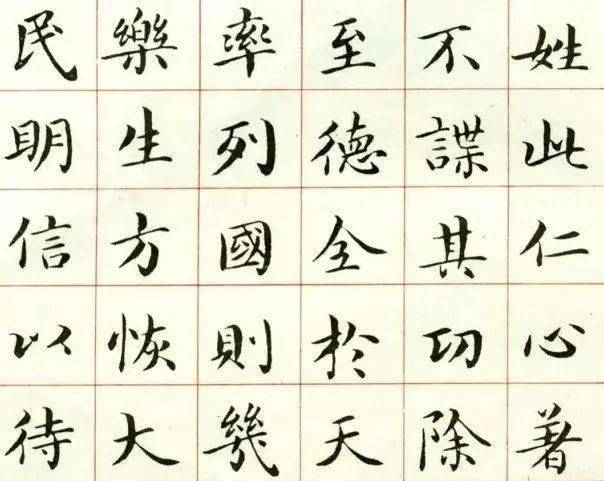 姓此仁心著
不謀其功除
至德全於天
率列國則幾
樂生方恢大
民明信以待